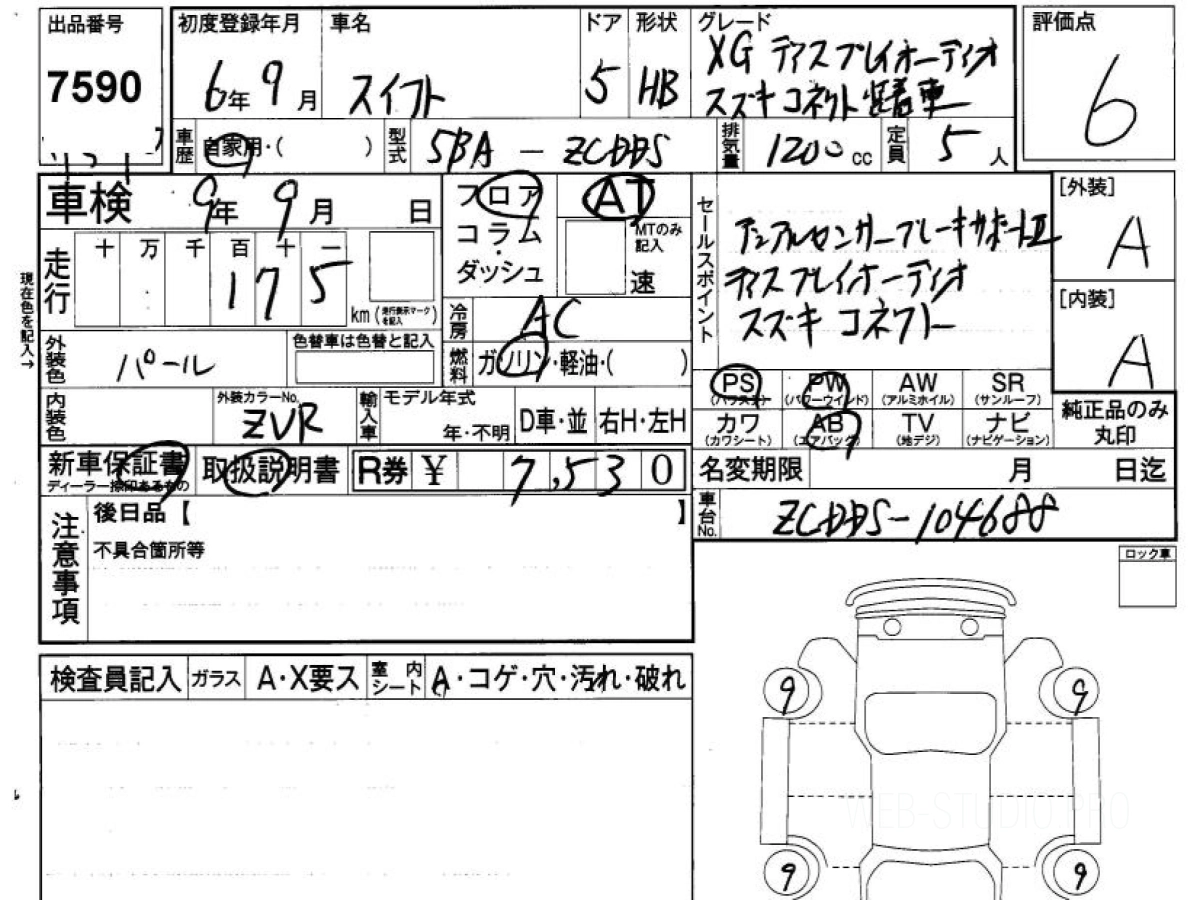 出品番号
7590
初度登録年月
6年9月
車名
スイフト
ドア
5
形状
HB
グレード
XG ディスプレイオーディオ
スズキコネクト装着車
評価点
6
車歴
自家用・( )
型式
5BA-ZCDDS
排気量
1200cc
定員
5人
車検
9年9月 日
フロア
コラム
・
ダッシュ
AT
MTのみ
記入
速
セールスポイント
デュアルセンサーブレーキサポートII
ディスプレイオーディオ
スズキコネクト
[外装]
A
[内装]
A
現在色を記入→
走行
十 万 千 百 十 一
175
km(走行表示マークを記入)
冷房
AC
燃料
ガソリン・軽油・( )
外装色
パール
色替車は色替と記入
内装色
外装カラーNo.
ZVR
輸入車
モデル年式
年・不明
D車・並
右H・左H
PS
(パワステ)
PW
(パワーウインド)
AW
(アルミホイル)
SR
(サンルーフ)
カワ
(カワシート)
AB
(エアバッグ)
TV
(地デジ)
ナビ
(ナビゲーション)
純正品のみ
丸印
新車保証書
ディーラー捺印あるもの
取扱説明書
R券
¥ 7,530
名変期限
月 日迄
車台No.
ZCDDS-104688
注意事項
後日品【 】
不具合箇所等
ロック車
検査員記入
ガラス
A・X要ス
室内シート
A・コゲ・穴・汚れ・破れ
9
9
9
9
WEB-STUDIO.PRO